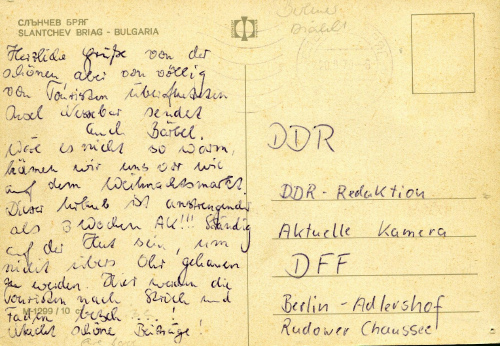 СЛЪНЧЕВ БРЯГ
SLANTCHEV BRIAG - BULGARIA
Herzliche Grüße von der
schönen aber von völlig
von Touristen überfluteten
Insel Nessebar sendet
Euch Bärbel.
Wäre es nicht so warm,
kämen wir uns vor wie
auf dem Weihnachtsmarkt.
Dieser Urlaub ist anstrengender
als 3 Wochen AK!!! Ständig
auf der Hut sein, um
nicht übers Ohr gehauen
zu werden. Hier werden die
Touristen nach Strich und
Faden besch...!
Macht schöne Beiträge!
M-1299/10
DDR
DDR-Redaktion
Aktuelle Kamera
DFF
Berlin-Adlershof
Rudower Chaussee